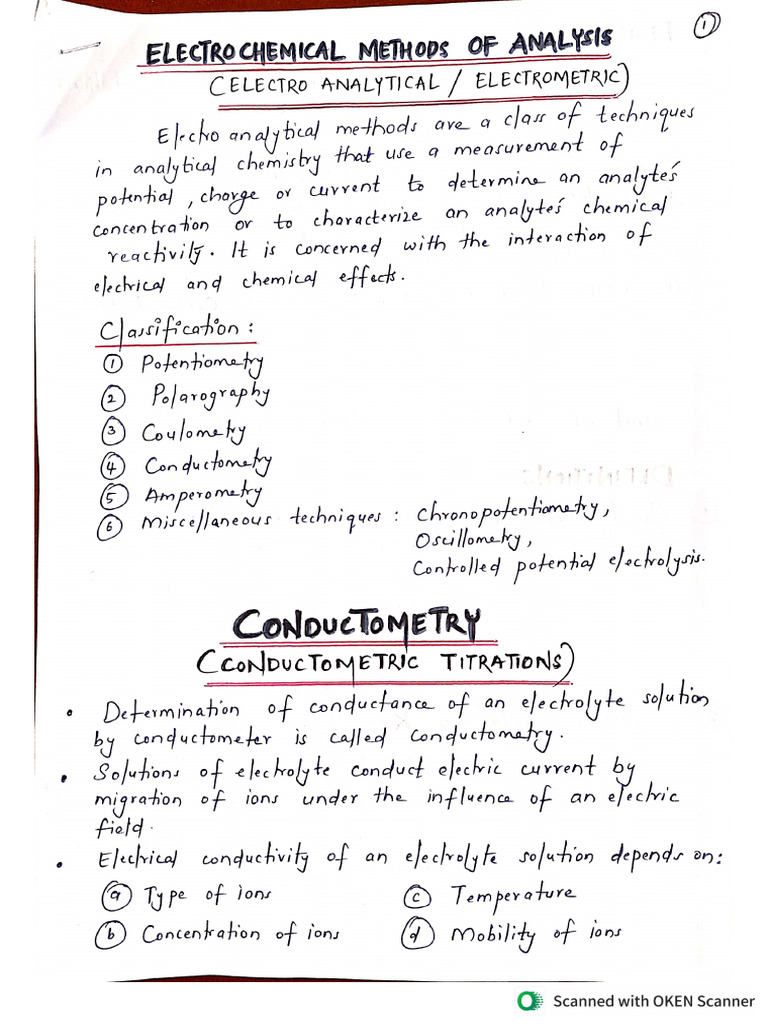 1
ELECTROCHEMICAL METHODS OF ANALYSIS
(ELECTRO ANALYTICAL / ELECTROMETRIC)
Electro analytical methods are a class of techniques
in analytical chemistry that use a measurement of
potential, charge or current to determine an analyte's
concentration or to characterize an analyte's chemical
reactivity. It is concerned with the interaction of
electrical and chemical effects.
Classification :
1 Potentiometry
2 Polarography
3 Coulometry
4 Conductometry
5 Amperometry
6 Miscellaneous techniques : Chronopotentiometry,
Oscillometry,
Controlled potential electrolysis.
CONDUCTOMETRY
(CONDUCTOMETRIC TITRATIONS)
• Determination of conductance of an electrolyte solution
by conductometer is called conductometry.
• Solutions of electrolyte conduct electric current by
migration of ions under the influence of an electric
field.
• Electrical conductivity of an electrolyte solution depends on:
a Type of ions c Temperature
b Concentration of ions d Mobility of ions
Scanned with OKEN Scanner